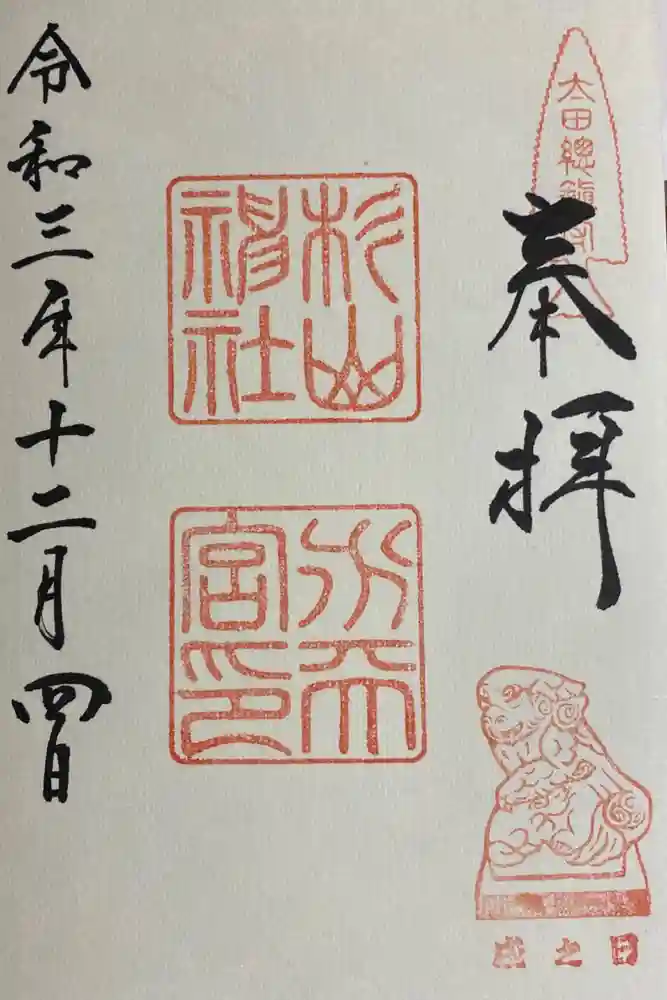 太田總鎮守
奉拝
杉山
神社
水天
宮印
戌之日
令和三年十二月四日